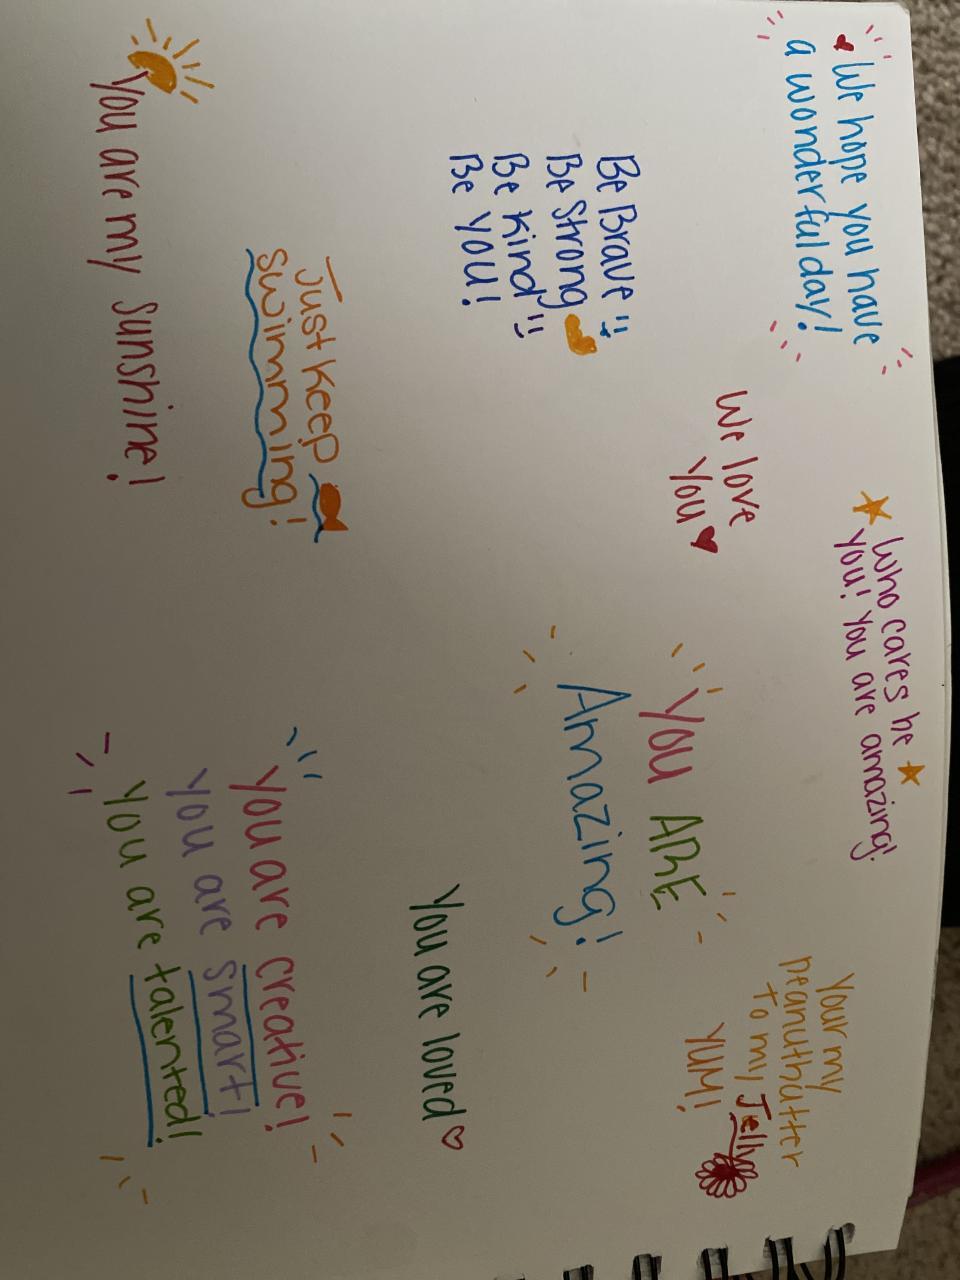 We hope you have
a wonderful day!
Who cares he
you! You are amazing!
Your my
peanutbutter
to my Jelly
YUM!
We love
you
Be Brave
Be Strong
Be Kind
Be YOU!
YOU ARE
Amazing!
Just keep
swimming!
You are loved
You are my sunshine!
you are creative!
you are smart!
you are talented!